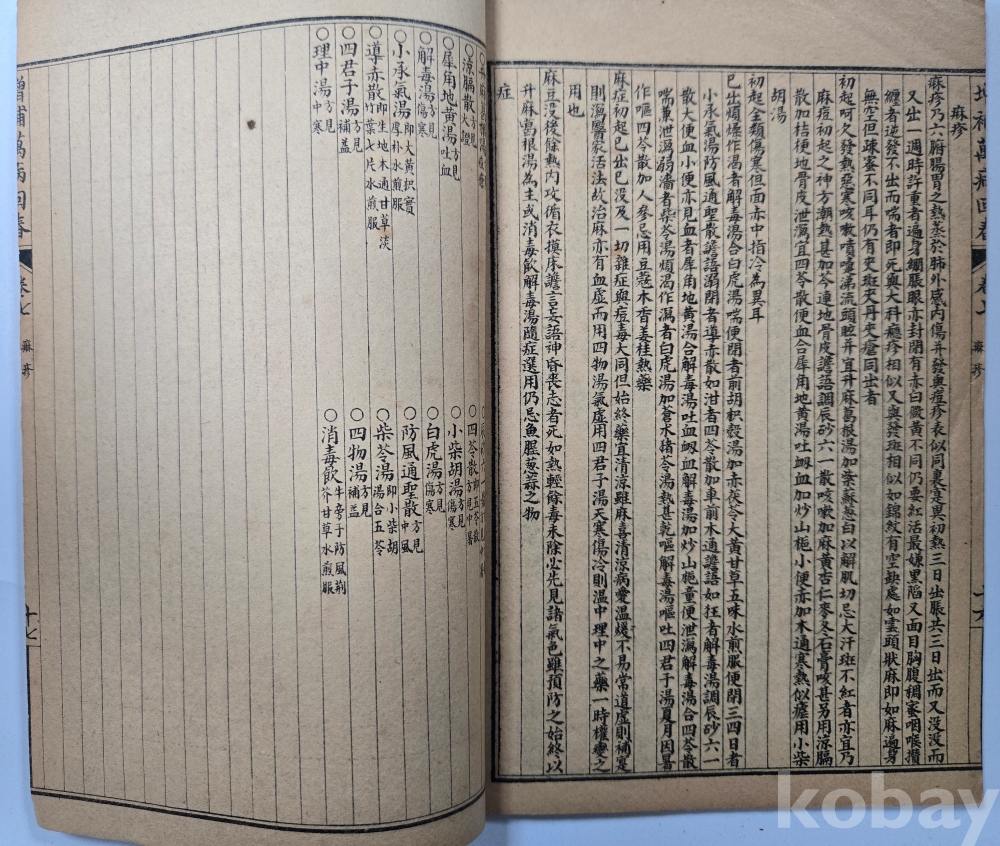 補萬病回春 卷七 麻疹 十六
麻疹
麻疹乃六腑腸胃之熱蒸於肺外感內傷并發與痘疹表似同裏寔異初熱三日出脹共三日出而又沒沒而
又出一週時許重者遍身綳脹眼亦封閉有赤白黴黃不同仍要紅活最嫌黑陷又面目胸腹稠蜜咽喉攢
纏者逆發不出而喘者即死與大科癮疹相似又與發斑相似如錦紋有空缺處如雲頭狀麻即如麻遍身
無空但疎蜜不同耳仍有夾斑夾丹夾瘡同出者
初起呵欠發熱惡寒咳嗽噴嚏涕流頭眩并宜升麻葛根湯加葉蘇葱白以解肌切忌大汗斑不紅者亦宜乃
麻痘初起之神方潮熱甚加芩連地骨皮譫語調辰砂六一散咳嗽加麻黃杏仁麥冬石膏咳甚另用涼膈
散加桔梗地骨皮泄瀉宜四苓散便血合犀角地黃湯吐衂血加炒山梔小便赤加木通寒熱似瘧用小柴
胡湯
初起全類傷寒但面赤中指冷為異耳
已出煩燥作渴者解毒湯合白虎湯喘便閉者前胡枳殼湯加赤茯苓大黃甘草五味水煎服便閉三四日者
小承氣湯防風通聖散譫語溺閉者導赤散如泔者四苓散加車前木通譫語如狂者解毒湯調辰砂六一
散大便血小便亦見血者犀角地黃湯合解毒湯吐血衂血解毒湯加炒山梔童便泄瀉解毒湯合四苓散
喘兼泄瀉溺濇者柴苓湯煩渴作瀉者白虎湯加蒼朮猪苓湯熱甚乾嘔解毒湯嘔吐四君子湯夏月因暑
作嘔四苓散加人參忌用豆蔻木香姜桂熱藥
麻症初起已出已沒及一切雜症與痘毒大同但始終藥宜清涼雖麻喜清涼病愛溫煖不易常道虛則補寔
則瀉醫家活法故治麻亦有血虛而用四物湯氣虛用四君子湯天寒傷冷則溫中理中之藥一時權變之
用也
麻豆沒後餘熱內攻循衣摸床譫言妄語神昏喪志者死如熱輕餘毒未除必先見諸氣色雖預防之始終以
升麻葛根湯為主或消毒飲解毒湯隨症選用仍忌魚腥葱蒜之物
症
○涼膈散方見火鬱
○犀角地黃湯方見吐血
○解毒湯方見傷寒
○小承氣湯即大黃枳實厚朴水煎服
○導赤散即生地木通甘草淡竹葉七片水煎服
○四君子湯方見補益
○理中湯方見中寒
○四苓散即五苓散方見中暑
○小柴胡湯方見傷寒
○白虎湯方見傷寒
○防風通聖散方見中風
○柴苓湯即小柴胡湯合五苓
○四物湯方見補益
○消毒飲牛旁子防風荊芥甘草水煎服
增補萬病回春 卷七 麻疹 十七
kobay